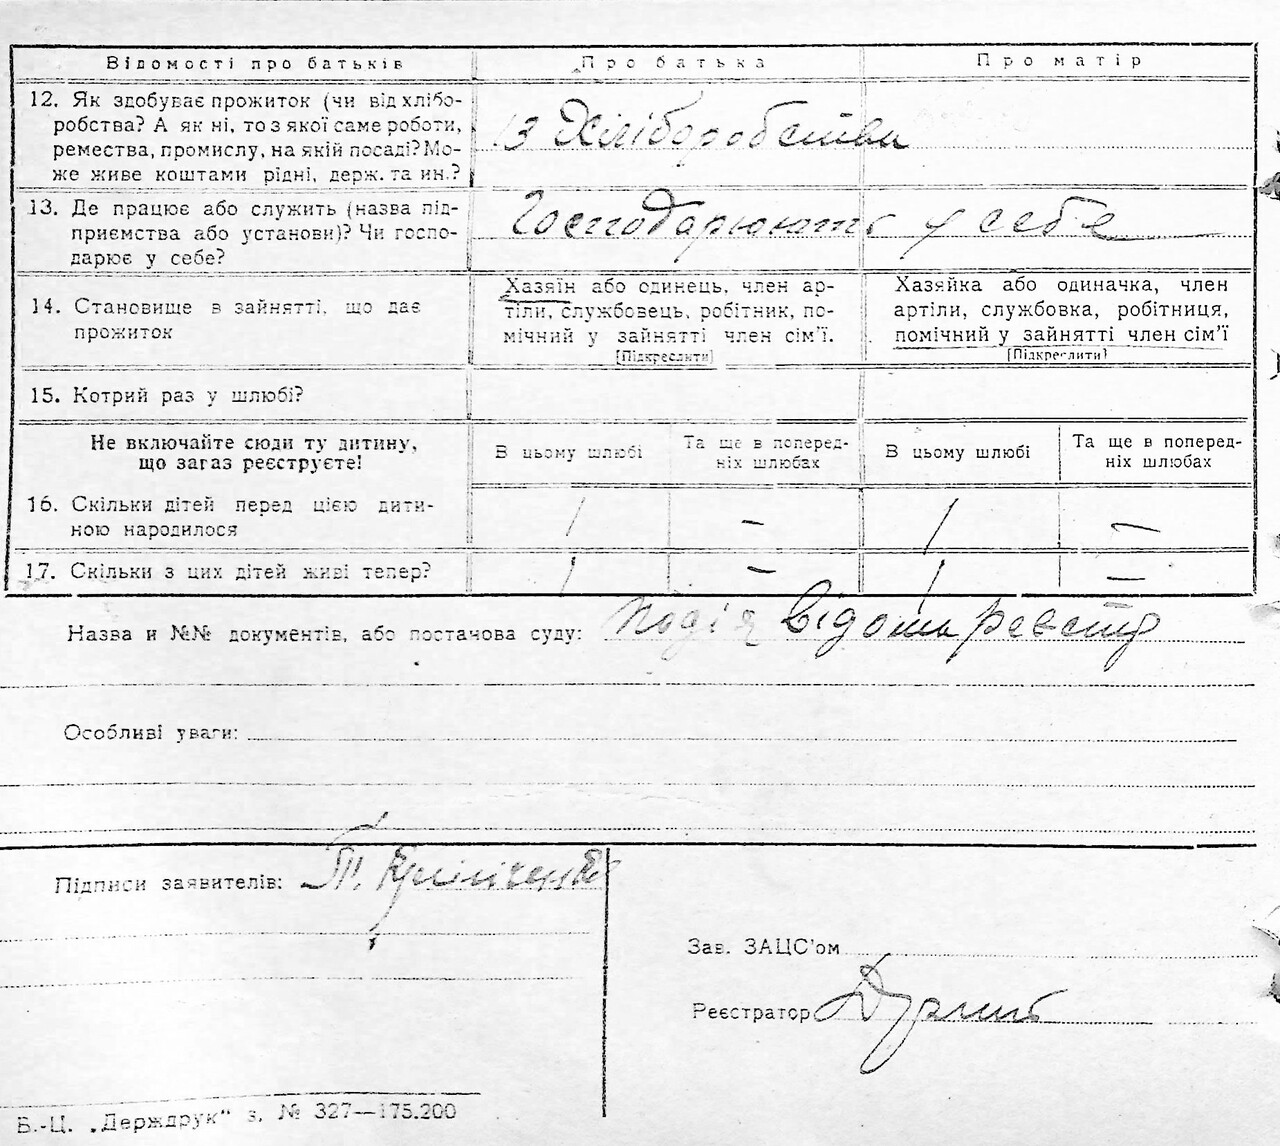 Відомості про батьків
Про батька
Про матір
12. Як здобуває прожиток (чи від хлібо-
робства? А як ні, то з якої саме роботи,
ремества, промислу, на якій посаді? Мо-
же живе коштами рідні, держ. та ин.?
Із Хліборобства
13. Де працює або служить (назва під-
приємства або установи)? Чи госпо-
дарює у себе?
Господарюють у себе
14. Становище в зайнятті, що дає
прожиток
Хазяїн або одинець, член ар-
тіли, службовець, робітник, по-
мічний у зайнятті член сім'ї.
[Підкреслити]
Хазяйка або одиначка, член
артіли, службовка, робітниця,
помічний у зайнятті член сім'ї
[Підкреслити]
15. Котрий раз у шлюбі?
Не включайте сюди ту дитину,
що загаз реєструєте!
В цьому шлюбі
Та ще в поперед-
ніх шлюбах
В цьому шлюбі
Та ще в поперед-
ніх шлюбах
16. Скільки дітей перед цією дити-
ною народилося
1 — 1 —
17. Скільки з цих дітей живі тепер?
1 — 1 —
Назва и №№ документів, або постанова суду: подія відома
Особливі уваги:
Підписи заявителів:
Зав. ЗАЦС'ом
Реєстратор
Б.-Ц. „Держдрук" з. № 327—175.200